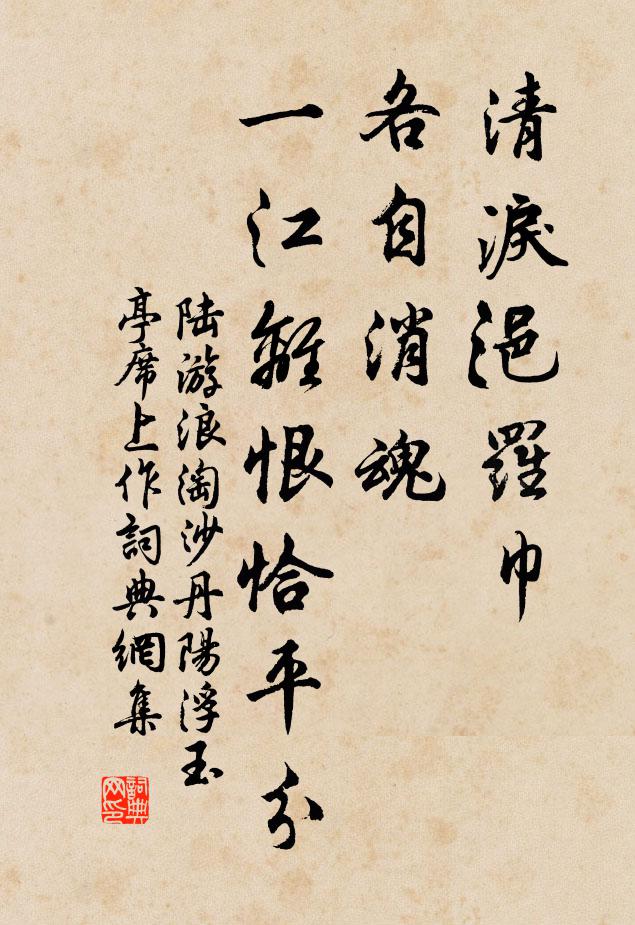 清淚浥羅巾
各自消魂
一江離恨恰平分
陆游浪淘沙丹陽浮玉
亭席上作詞典網集
詞典
网印